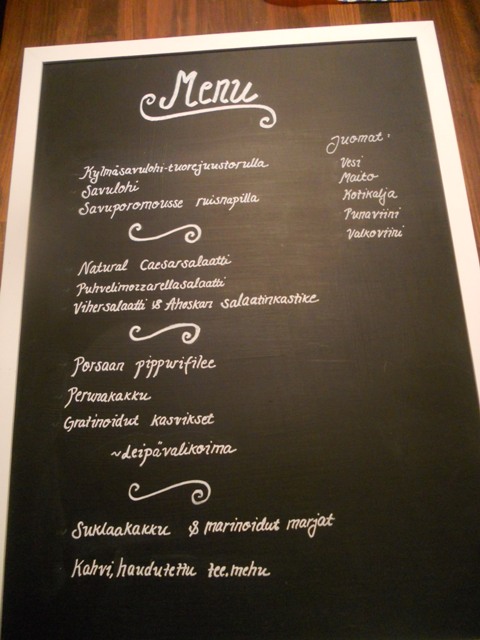 Menu
Kylmäsavulohi-tuorejuustorulla
Savulohi
Savuporomousse ruisnapilla
Natural Caesarsalaatti
Puhvelimozzarellasalaatti
Vihersalaatti & Ahoskan salaatinkastike
Porsaan pippurifilee
Perunakakku
Gratinoidut kasvikset
~Leipävalikoima
Suklaakakku & marinoidut marjat
Kahvi, haudutettu tee, mehu
Juomat:
Vesi
Maito
Kotikalja
Punaviini
Valkoviini